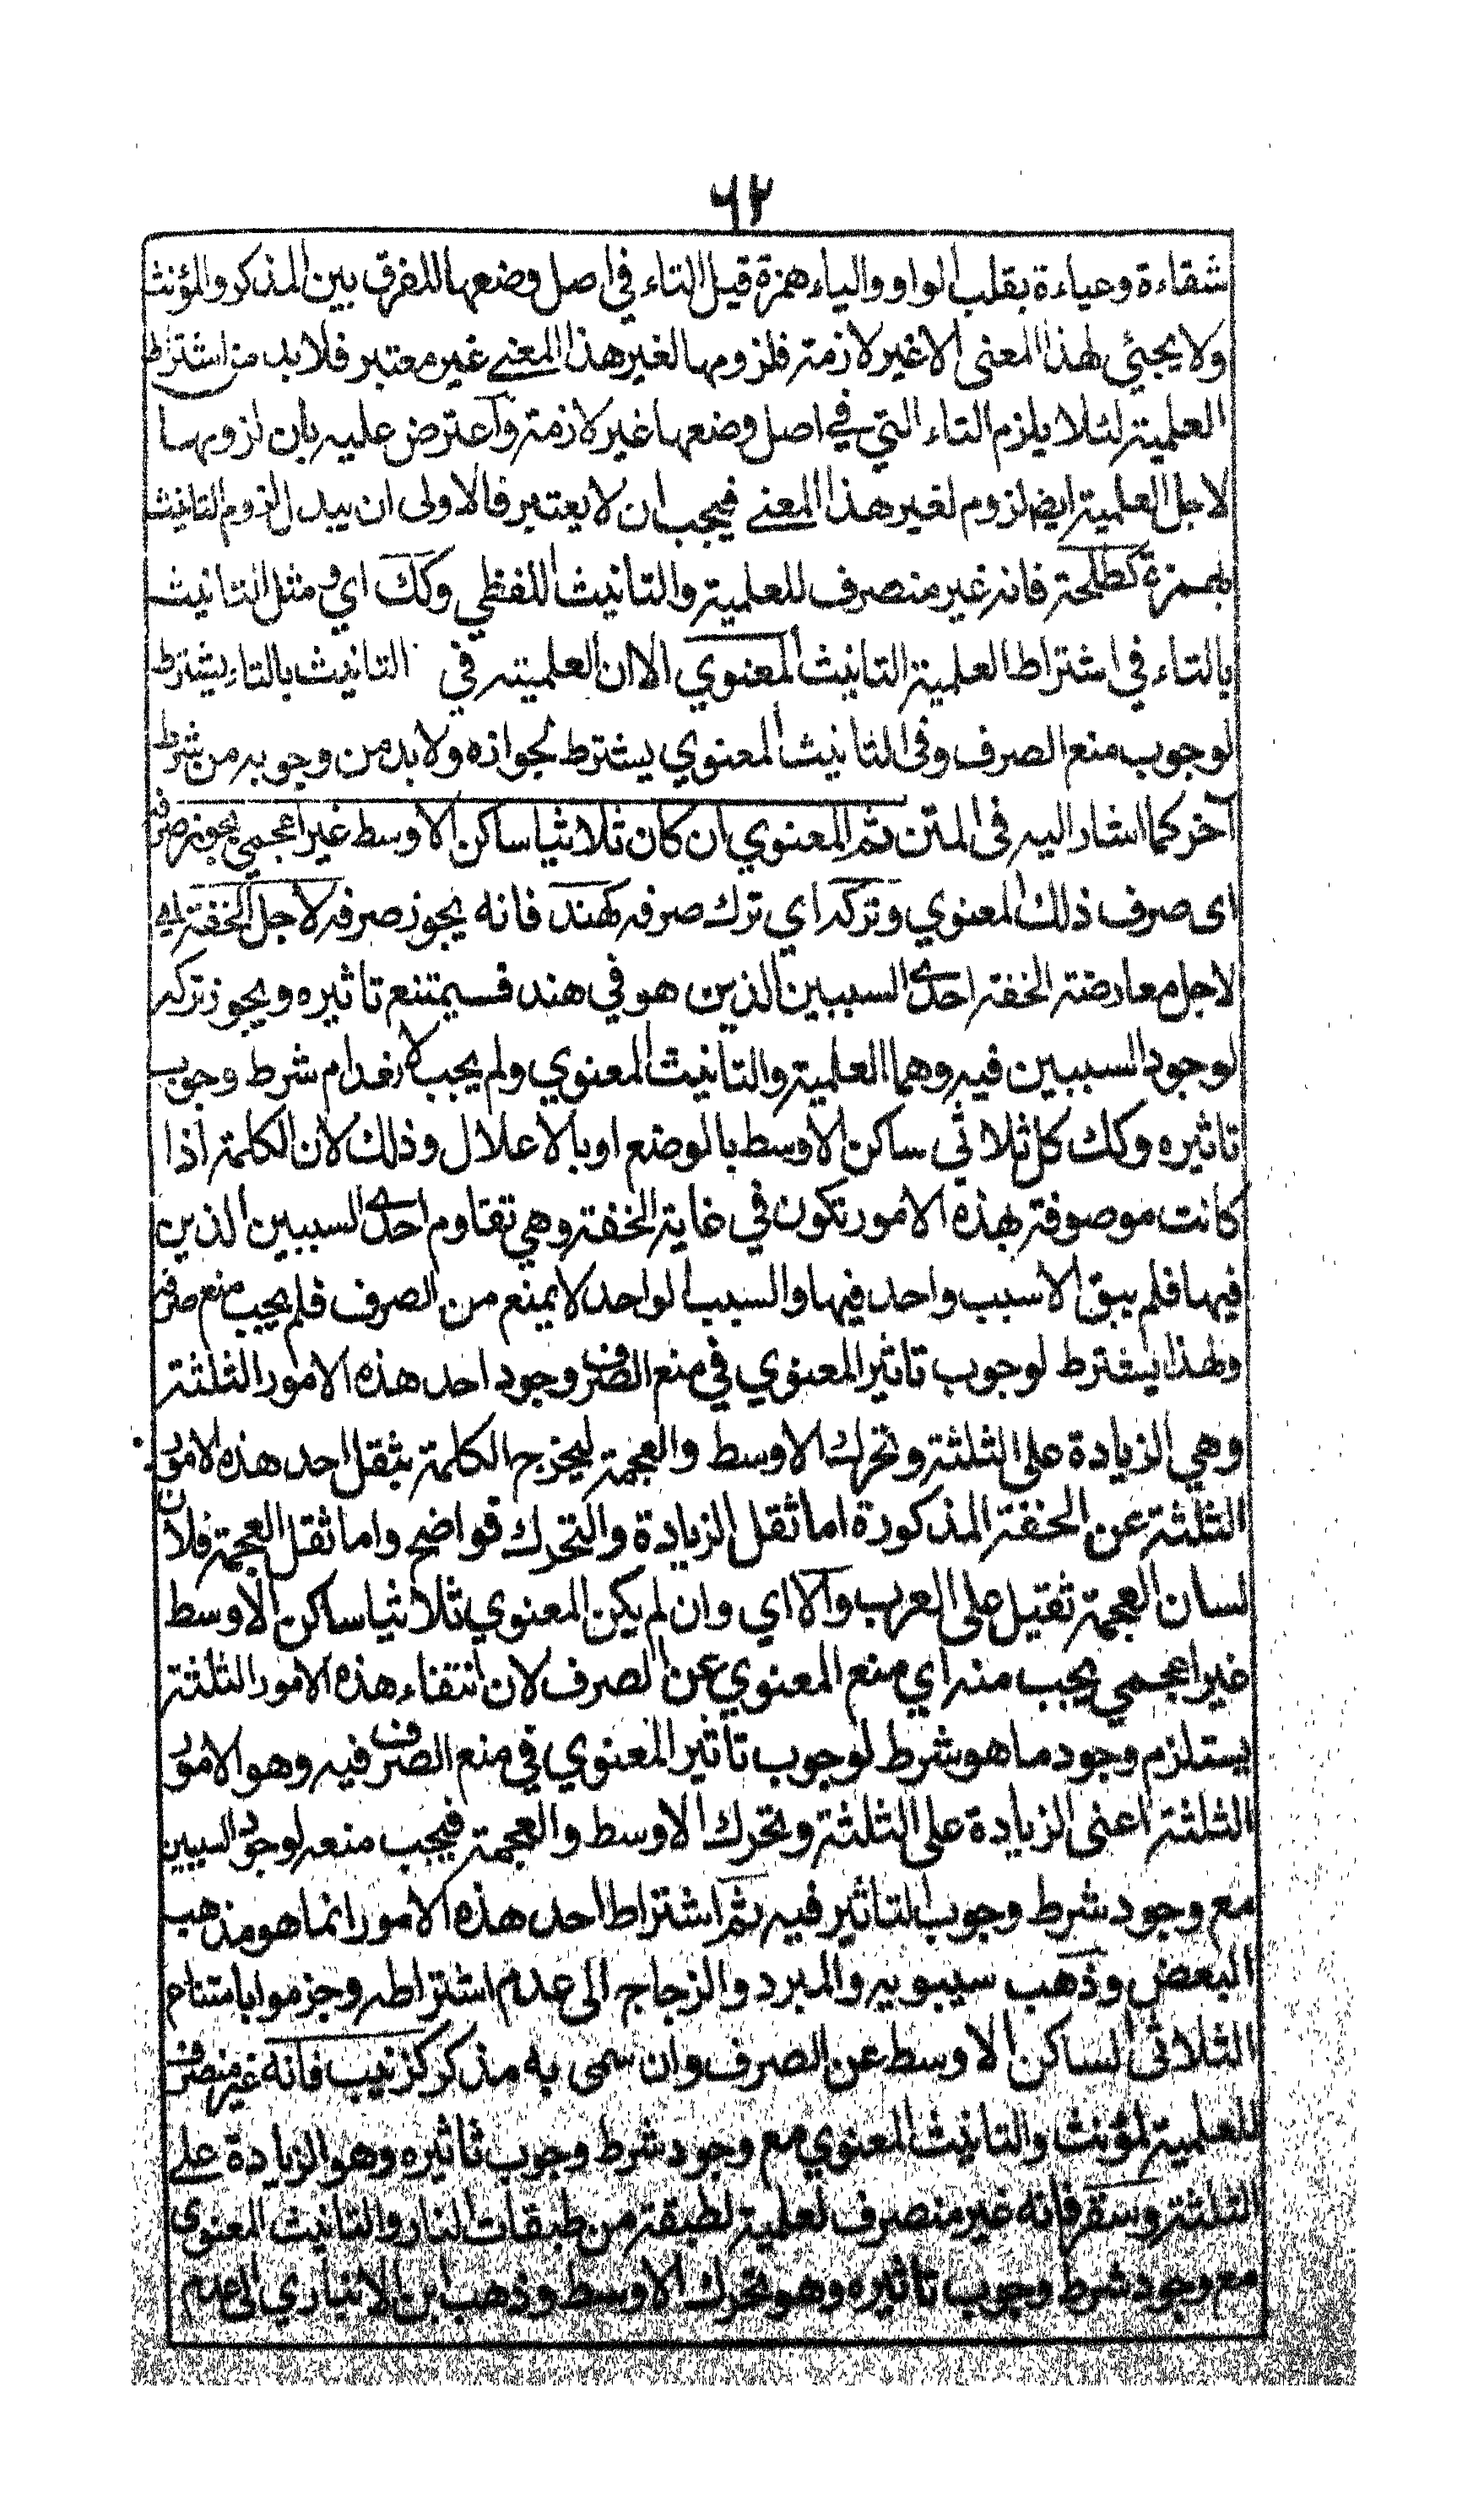 ٦٢
شقاءة وعياءة بقلب الواو والياء همزة قيل التاء في اصل وضعها للفرق بين المذكر والمؤنث
ولا يجيئ لهذا المعنى الا غير لازمة فلزومها لغير هذا المعنے غير معتبر فلا بد من اشتراط
العلمية لئلا يلزم التاء التي في اصل وضعها غير لازمة واعترض عليه بان لزومها
لاجل العلمية ايضا لزوم لغير هذا المعنے فيجب ان لا يعتبر فالاولى ان يبدل لزوم التانيث
بهمزة كطلحة فانه غير منصرف للعلمية والتانيث اللفظي وكك اي ومثل التانيث
بالتاء في اشتراط العلمية التانيث المعنوي الا ان العلمية في التانيث بالتاء يشترط
لوجوب منع الصرف وفى التانيث المعنوي يشترط لجوازه ولا بد من وجوبه من شرط
آخر كما اشار اليه فى المتن ثم المعنوي ان كان ثلاثيا ساكن الاوسط غير اعجمي يجوز صرفه
اى صرف ذلك المعنوي وتركه اي ترك صرفه كهند فانه يجوز صرفه لاجل الخفة اي
لاجل معارضة الخفة احدے السببين الذين هو في هند فسيمتنع تاثيره ويجوز تركه
لوجود السببين فيه وهما العلمية والتانيث المعنوي ولم يجب لانعدام شرط وجوب
تاثيره وكك كل ثلاثي ساكن الاوسط بالوضع او بالاعلال وذلك لان الكلمة اذا
كانت موصوفة بهذه الامور تكون في غاية الخفة وهي تقاوم احدے السببين الذين
فيها فلم يبق الا سبب واحد فيها والسبب الواحد لا يمنع من الصرف فلم يجب منع صرفه
ولهذا يشترط لوجوب تاثير المعنوي في منع الصرف وجود احد هذه الامور الثلثة
وهي الزيادة على الثلثة وتحرك الاوسط والعجمة ليخرج الكلمة بثقل احد هذه الامور
الثلثة عن الخفة المذكورة اما ثقل الزيادة والتحرك فواضح واما ثقل العجمة فلان
لسان العجمة ثقيل على العرب والا اي وان لم يكن المعنوي ثلاثيا ساكن الاوسط
غير اعجمي يجب منه اي منع المعنوي عن الصرف لان انتفاء هذه الامور الثلثة
يستلزم وجود ما هو شرط لوجوب تاثير المعنوي في منع الصرف فيه وهو الامور
الثلثة اعنى الزيادة على الثلثة وتحرك الاوسط والعجمة فيجب منعه لوجود السببين
مع وجود شرط وجوب التاثير فيه ثم اشتراط احد هذه الامور انما هو مذهب
البعض وذهب سيبويه والمبرد والزجاج الى عدم اشتراطه وجزموا بامتناع
الثلاثى الساكن الاوسط عن الصرف وان سمى به مذكر كزنيب فانه غير منصرف
للعلمية لمؤنث والتانيث المعنوي مع وجود شرط وجوب تاثيره وهو الزيادة علے
الثلثة وسقر فانه غير منصرف لعلمية لطبقة من طبقات النار والتانيث المعنوى
مع وجود شرط وجوب تاثيره وهو تحرك الاوسط وذهب ابن الانباري الى عدم